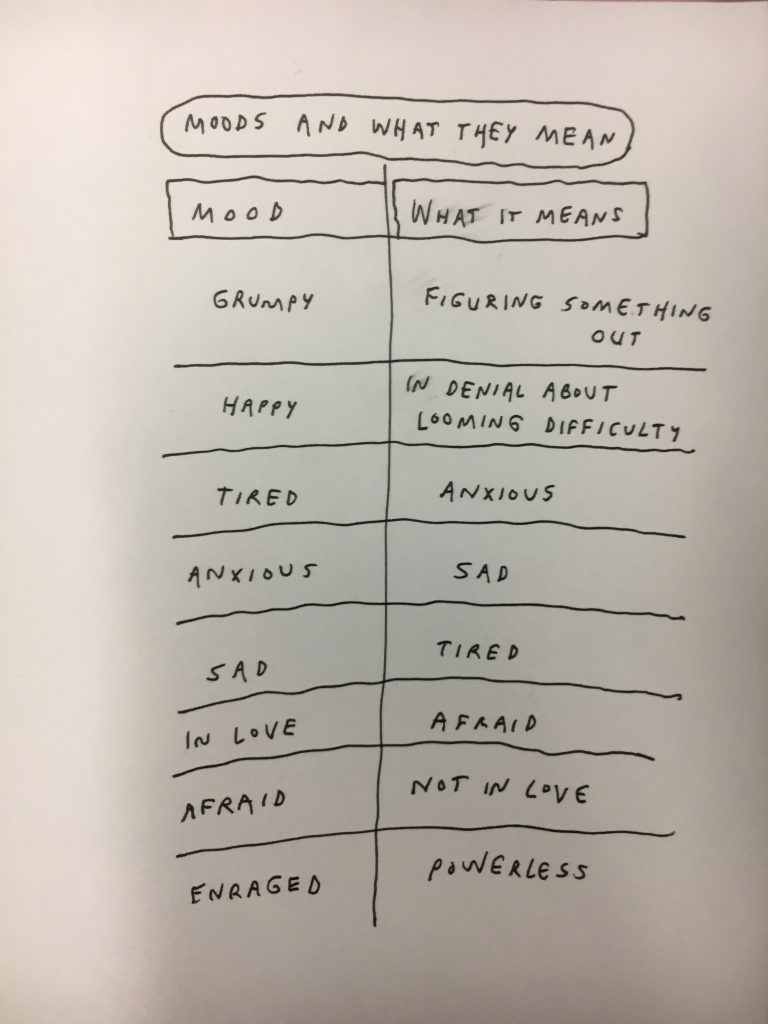 MOODS AND WHAT THEY MEAN
MOOD WHAT IT MEANS
GRUMPY FIGURING SOMETHING
OUT
HAPPY IN DENIAL ABOUT
LOOMING DIFFICULTY
TIRED ANXIOUS
ANXIOUS SAD
SAD TIRED
IN LOVE AFRAID
AFRAID NOT IN LOVE
ENRAGED POWERLESS